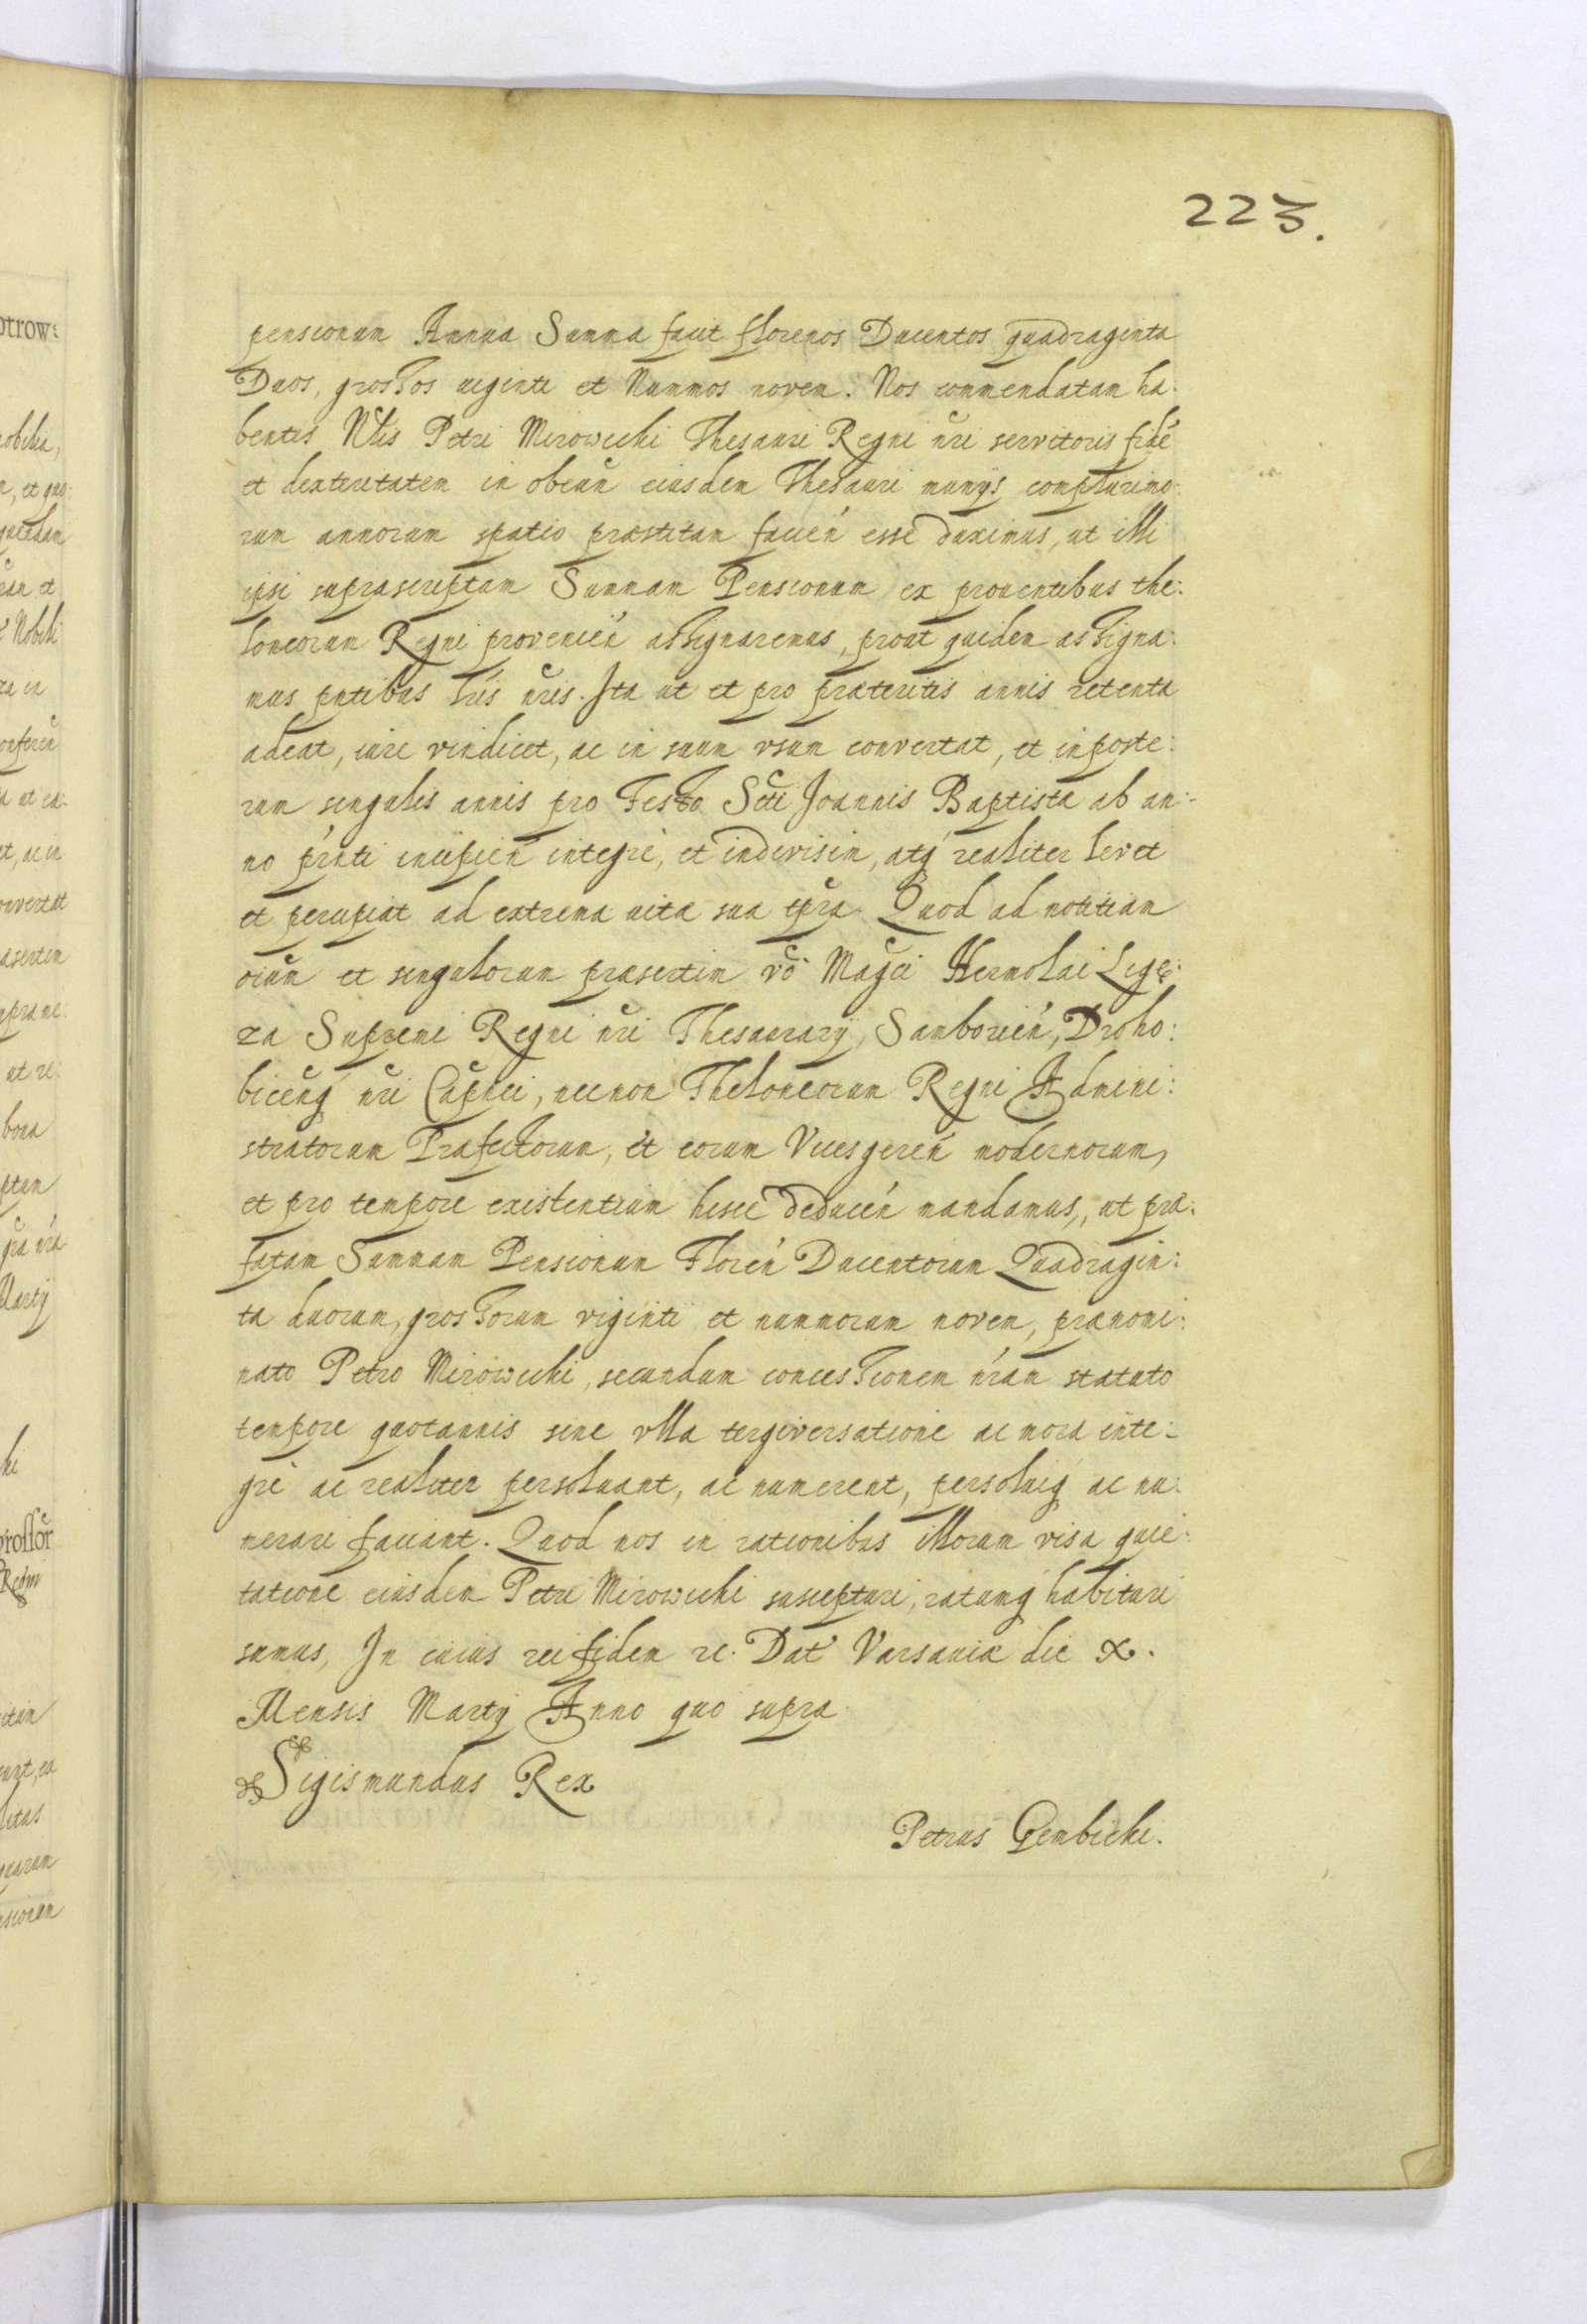 223.
pensionum Annua Summa facit florenos Ducentos quadraginta
Duos, grossos uiginti et Nummos novem. Nos commendatam ha:
bentes Nlis Petri Mirowicki Thesauri Regni nri servitoris fidé
et dexteritatem in obeun̄ eiusdem Thesauri munijs complurimo:
rum annorum spatio præstitam facień esse duximus, ut illi
ipsi suprascriptam Summam Pensionum ex prouentibus the:
loneorum Regni provenień assignaremus, prout quidem assigna:
mus pntibus lris nris. Ita ut et pro præteritis annis retenta
adeat, iure vindicet, ac in suum vsum convertat, et inposte:
rum singulis annis pro Festo Scti Joannis Baptista ab an:
no prnti incipień integrè, et indivisim, atq́ realiter levet
et percipiat ad extrema uitæ suæ tpra. Quod ad notitiam
oium et singulorum præsertim vo Magci Hermolai Lige:
za Supremi Regni nri Thesaurarij, Samborień, Droho:
biceńq nri Capnei, necnon Theloneorum Regni Admini:
stratorum Præfectorum, et eorum Vicesgereń modernorum,
et pro tempore existentium hisce deducéń mandamus, ut præ:
fatam Summam Pensionum Floreń Ducentorum Quadragin:
ta duorum, grossorum viginti et nummorum novem, prænomi:
nato Petro Mirowicki, secundum concessionem nrãm statuto
tempore quotannis sine vlla tergiversatione ac mora inte:
grè ac realiter persoluant, ac numerent, persoluiq́ ac nu:
merari faciant. Quod nos in rationibus illorum visa quie:
tatione eiusdem Petri Mirowicki suscepturi, ratumq́ habituri
sumus, In cuius rei fidem rc. Dat Varsauiæ die X.
Mensis Martij Anno quo supra.
Sigismundus Rex
Petrus Gembicki.